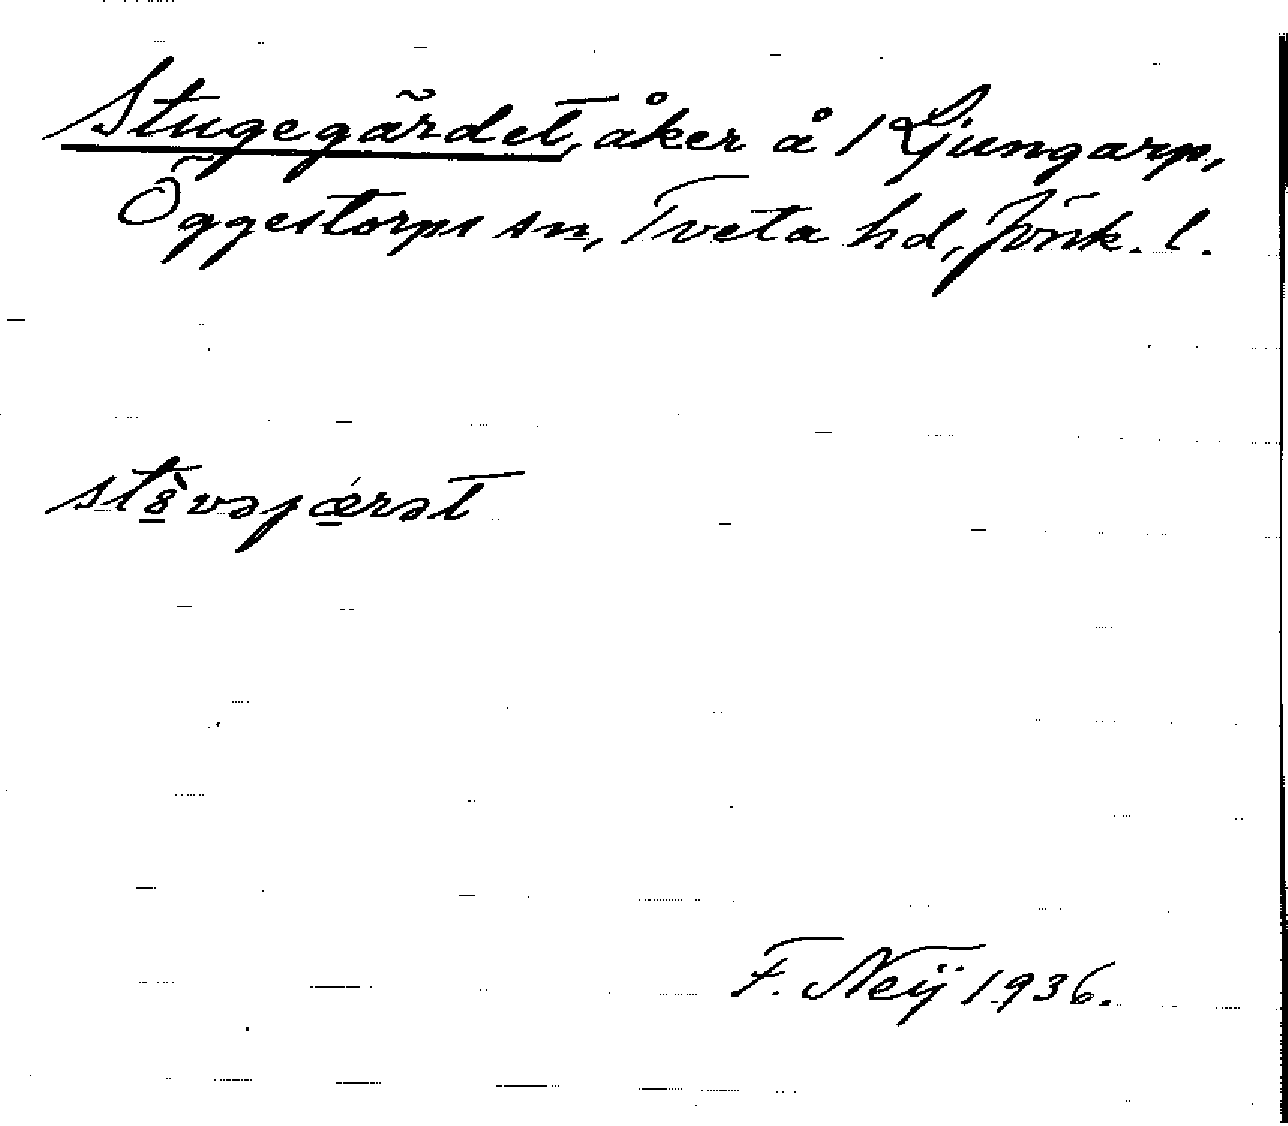 Stugegärdet, åker å 1 Ljungarp,
Öggestorps sn, Tveta hd, Jönk. l.
st8̀vəjǽrət
F. Neij 1936.